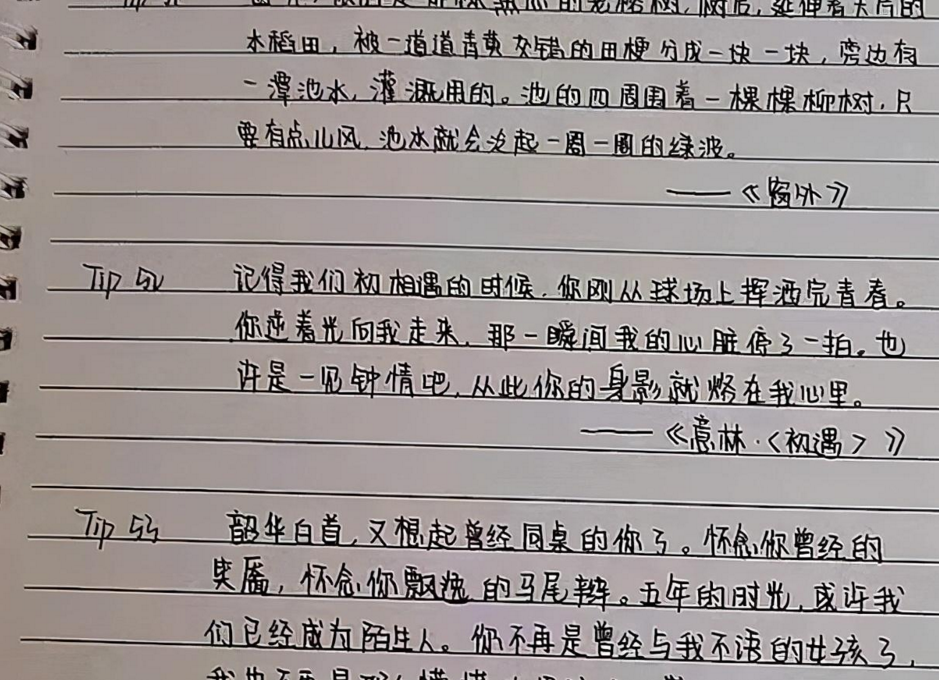 的老榕树，树后，延伸着大片的
水稻田，被一道道青黄交错的田梗分成一块一块，旁边有
一潭池水，灌溉用的。池的四周围着一棵棵柳树，只
要有点儿风，池水就会泛起一圈一圈的绿波。
——《窗外》
Tip 52 记得我们初相遇的时候，你刚从球场上挥洒完青春。
你逆着光向我走来，那一瞬间我的心脏停了一拍。也
许是一见钟情吧，从此你的身影就烙在我心里。
——《意林·〈初遇〉》
Tip 53 韶华白首，又想起曾经同桌的你了。怀念你曾经的
笑靥，怀念你飘逸的马尾辫。五年的时光，或许我
们已经成为陌生人。你不再是曾经与我不语的女孩了，